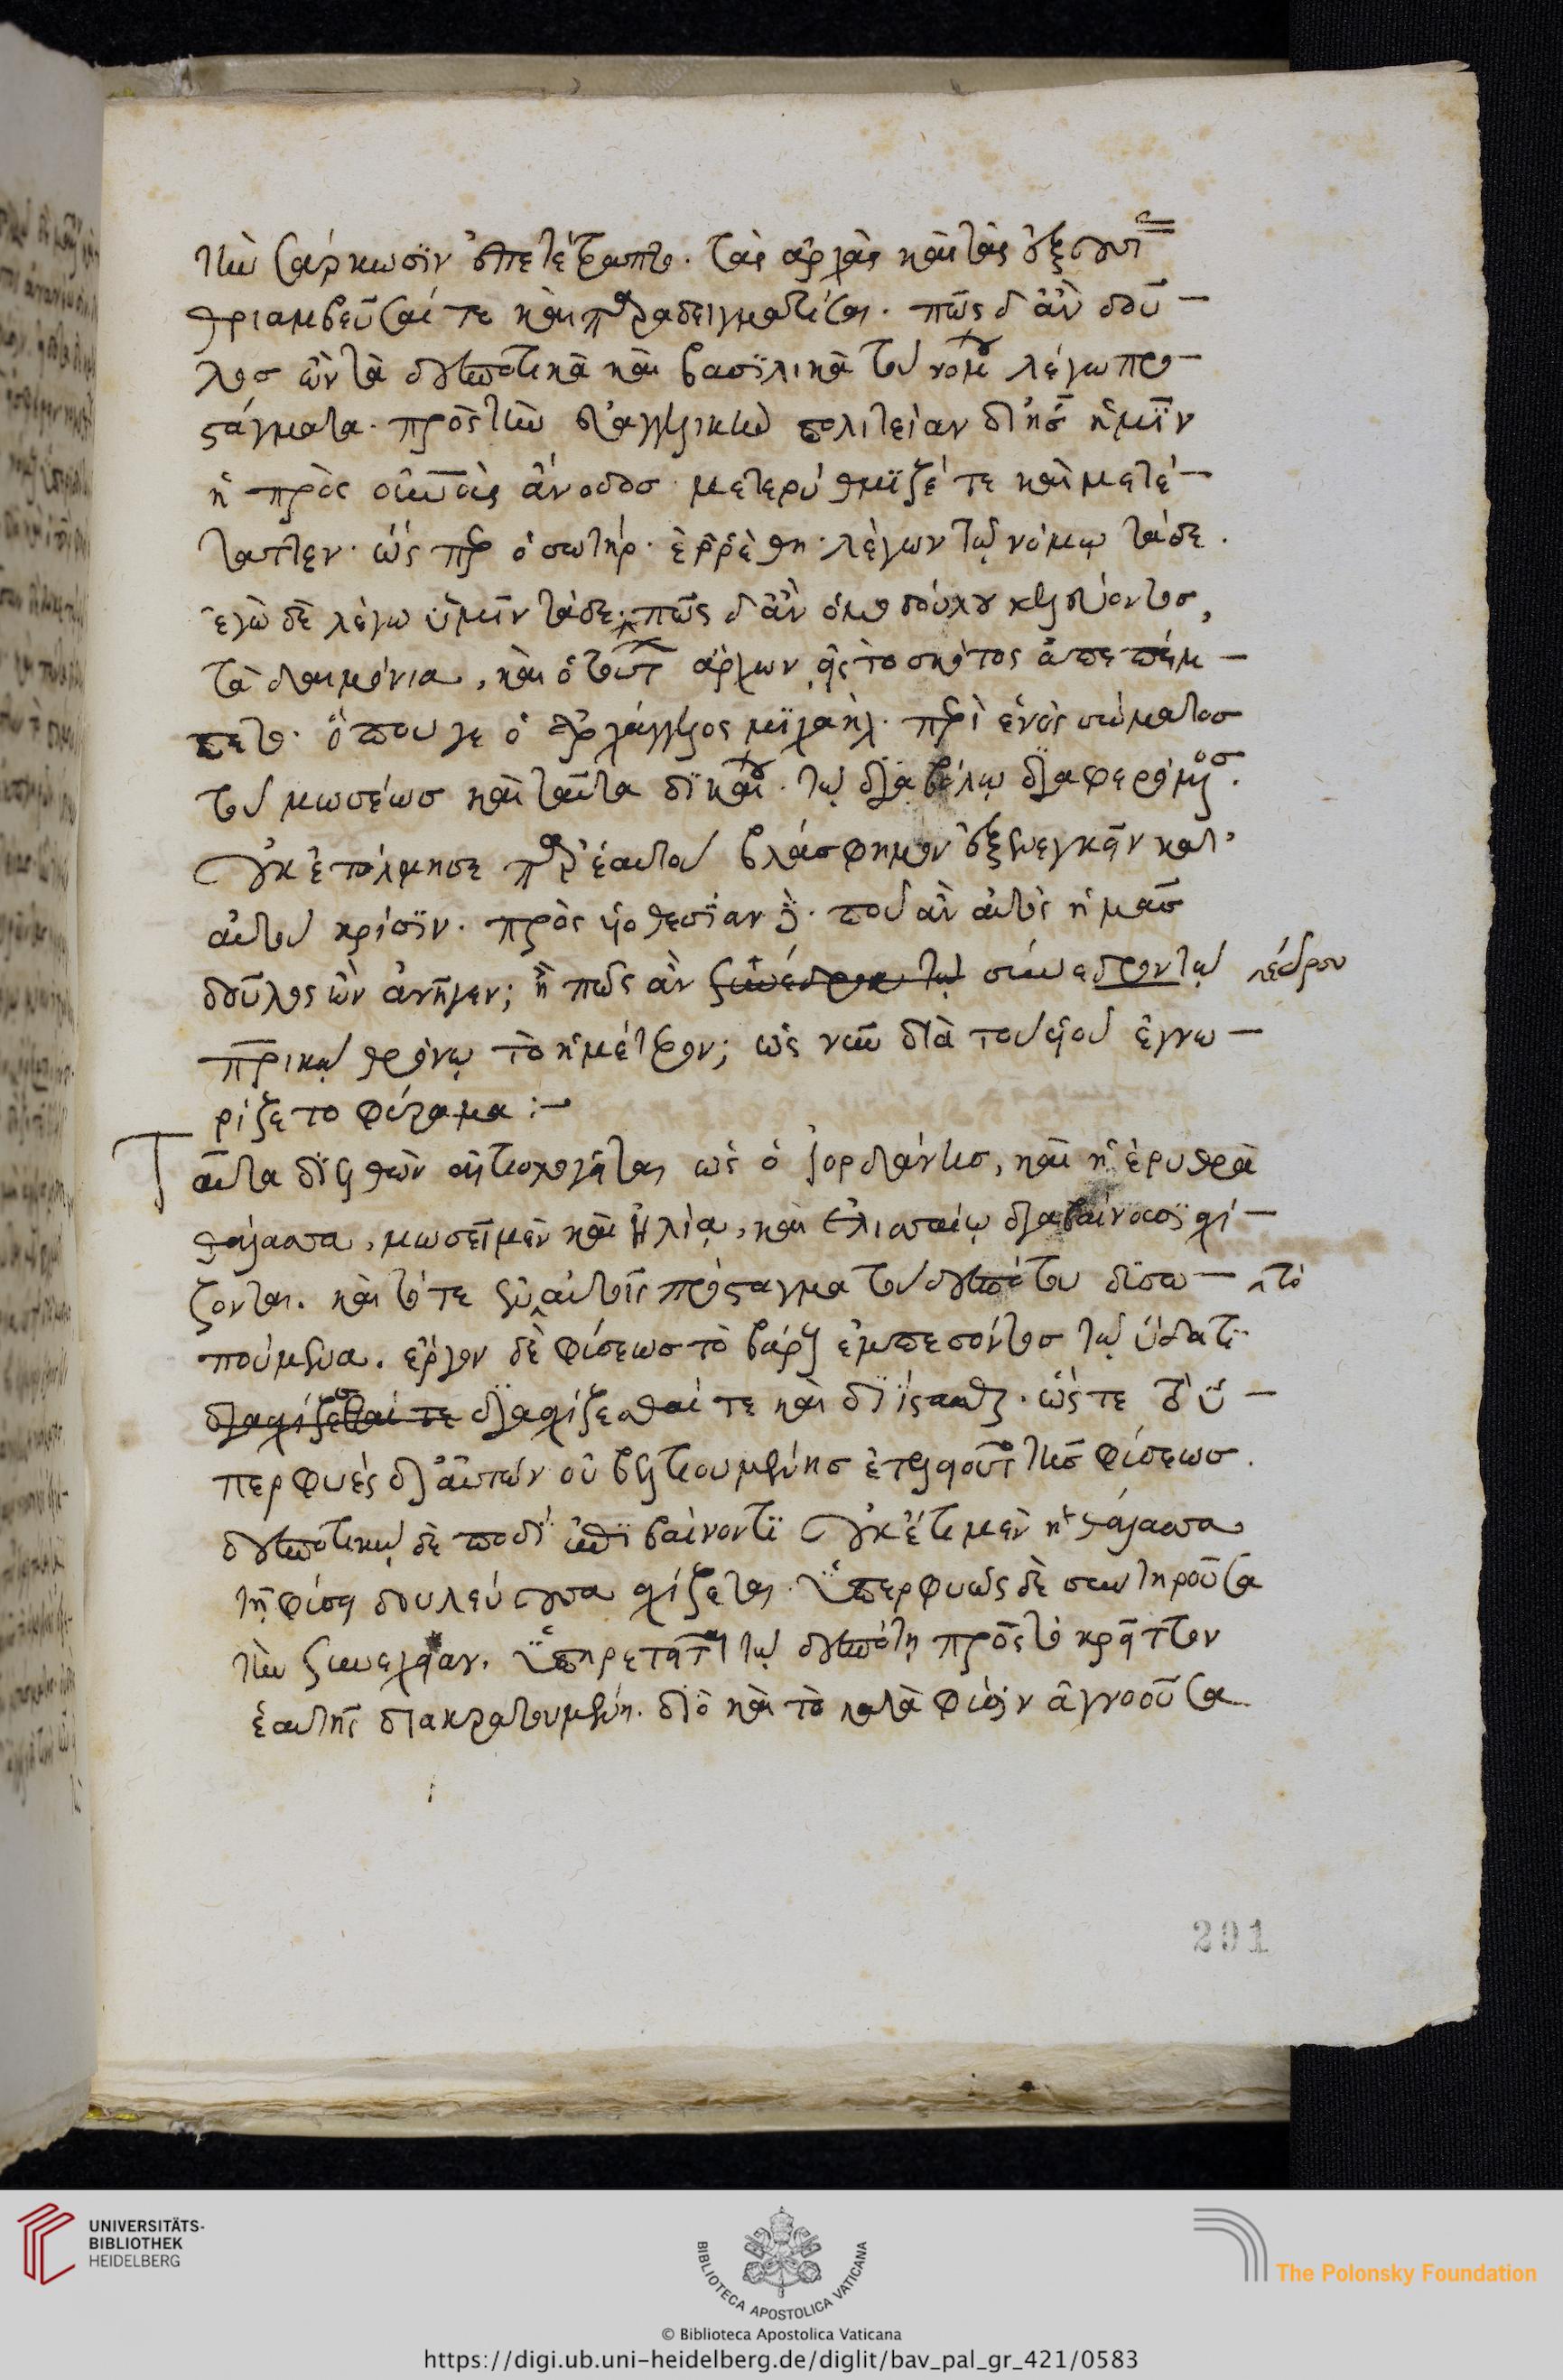 τὴν σάρκωσϊν ἐπετέτραπτο. τὰς ἀρχὰς καὶ τὰς ἐξουσί
θριαμβεῦσαί τε καὶ παραδειγματίσαι. πῶς δ' ἂν δοῦ-
λοσ ὢν τὰ δεσποτικὰ καὶ βασϊλικὰ τοῦ νόμου λέγω προ-
στάγματα. πρὸς τὴν εὐαγγελικὴν πολιτείαν δι' ἧσ ἡμῖν
ἡ πρὸς οὐρανοὺς ἄνοδοσ μετερύθμϊζέ τε καὶ μετέ-
ταττεν. ὡς περ ὁ σωτήρ. ἐρρέθη. λέγων τῷ νόμῳ τάδε.
ἐγὼ δὲ λέγω ὑμῖν τάδε. πῶς δ' ἂν ὁμοδούλου κελεύοντοσ,
τὰ δαιμόνια, καὶ ὁ τούτων ἄρχων εἰς τὸ σκότος ἀπεπέμ-
πετο. ὅπου γε ὁ ἀρχάγγελος μϊχαὴλ. περὶ ἑνὸς σώματοσ
τοῦ μωσέωσ καὶ ταῦτα δϊκαίου. τῷ διαβόλῳ διαφερόμενοσ.
οὐκ ἐτόλμησε παρ' ἑαυτοῦ βλάσφημον ἐξενεγκεῖν κατ'
αὐτοῦ κρίσϊν. πρὸς υἱοθεσίαν δὲ. ποῦ ἂν αὐτὸς ἡμᾶσ
δοῦλος ὢν ἀνῆγεν; ἢ πῶς ἂν συνέδρον τῷ σύνεδρον τῷ νέδρου
πατρικῷ θρόνῳ τὸ ἡμέτερον; ὡς νῦν διὰ τοῦ υἱοῦ ἐγνω-
ρίζετο φύραμα :-
Ταῦτα διελθὼν αἰτιολογεῖται ὡς ὁ ἰορδάνησ, καὶ ἡ ἐρυθρὰ
θάλασσα, μωσεῖ μὲν καὶ ἠλίᾳ, καὶ ἐλισσαίῳ διαβαίνουσϊ σχί-
ζονται. καὶ τότε ἐν αὐτοῖς πρόσταγμα τοῦ δεσπότου δϊσω- τὸ
πούμενα. ἔργον δὲ φύσεωσ τὸ βάρει ἐμπεσόντοσ τῷ ὕδατι
διασχίζεσθαί τε διασχίζεσθαί τε καὶ διΐστασθαι. ὥστε δ' ὑ-
περφυὲς δι' αὐτῶν οὐ βελτιουμένησ ἐτελοῦτο τῆσ φύσεωσ.
δεσποτικῷ δὲ ποδὶ ἐπϊβαίνοντϊ οὐκέτι μὲν ἡ θάλασσα
τῇ φύσει δουλεύουσα σχίζεται. ὑπερφυῶς δὲ συντηροῦσα
τὴν συνέχειαν. ὑπηρετεῖται τῷ δεσπότῃ πρὸς τὸ κρεῖττον
ἑαυτῆς διακρατουμένη. διὸ καὶ τὸ κατὰ φύσιν ἀγνοοῦσα
291
UNIVERSITÄTS-
BIBLIOTHEK
HEIDELBERG
BIBLIOTECA APOSTOLICA VATICANA
The Polonsky Foundation
© Biblioteca Apostolica Vaticana
https://digi.ub.uni-heidelberg.de/diglit/bav_pal_gr_421/0583